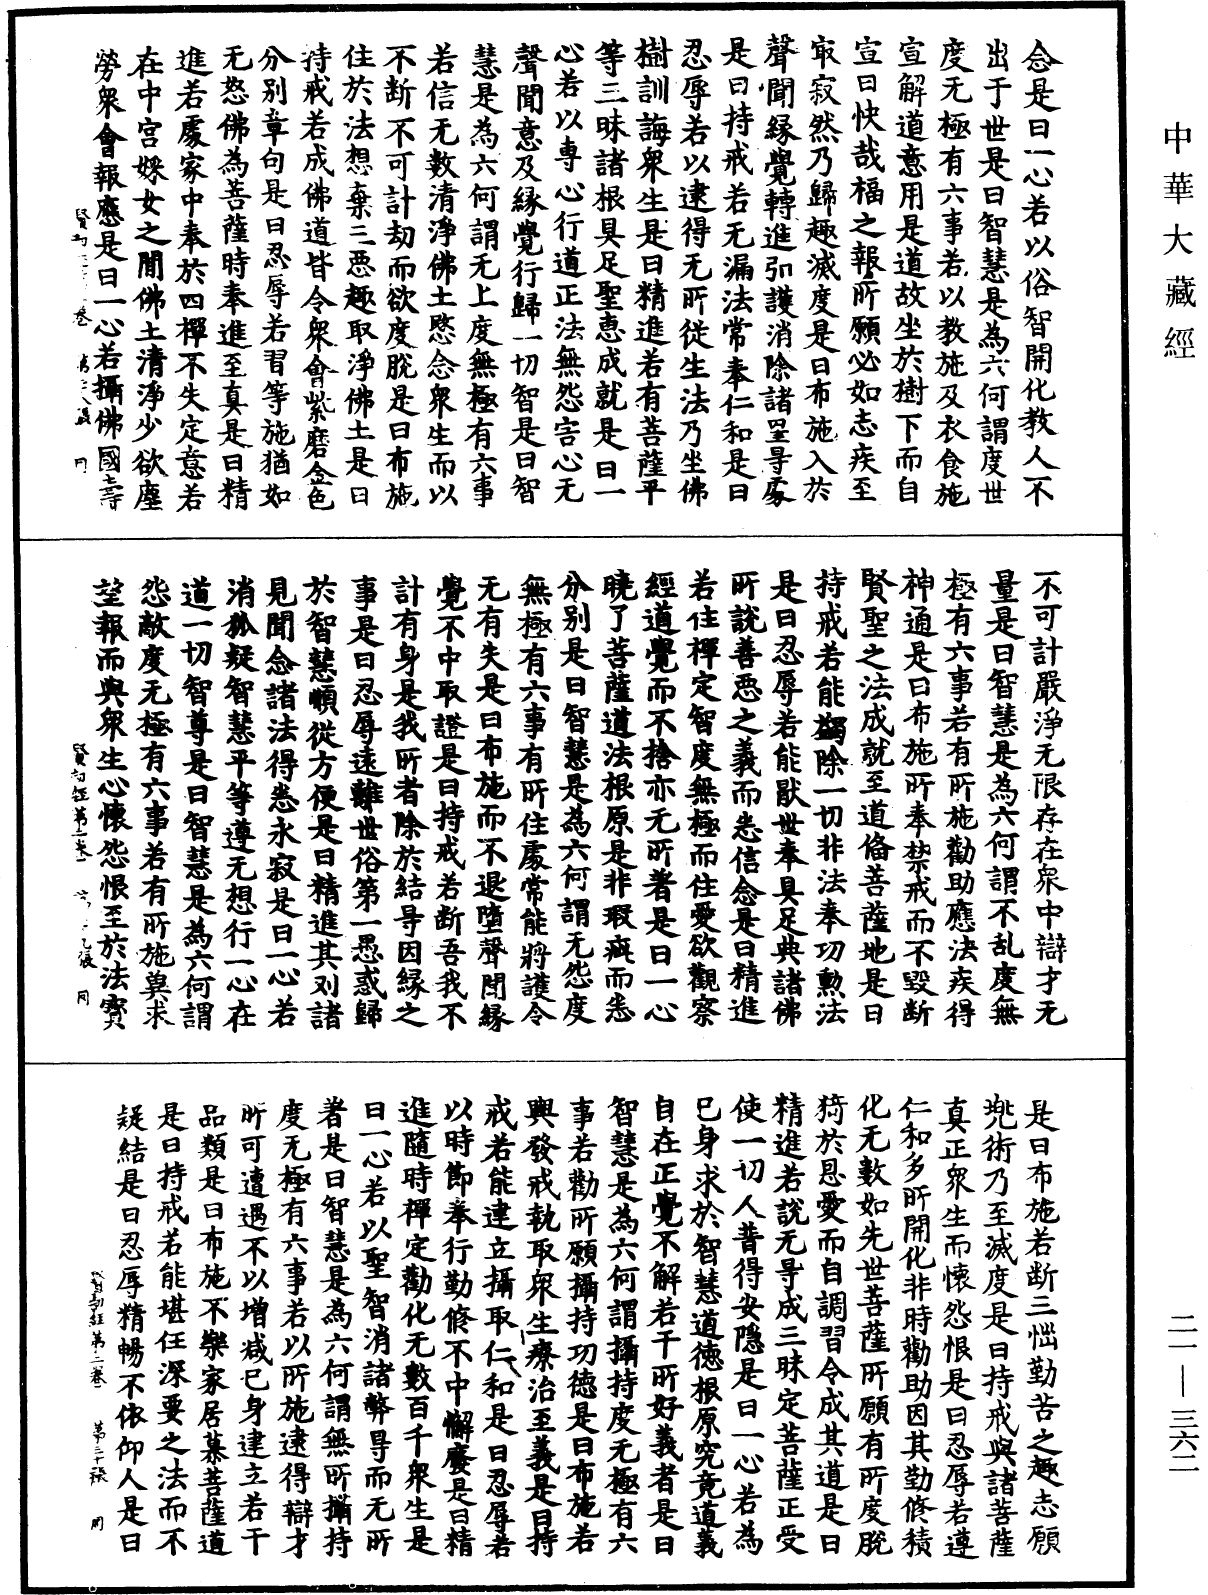 中華大藏經
念是曰一心若以俗智開化教人不
出于世是曰智慧是為六何謂度世
度无極有六事若以教施及衣食施
宣解道意用是道故坐於樹下而自
宣曰快哉福之報所願必如志疾至
寂然乃歸趣滅度是曰布施入於
聲聞緣覺轉進引護消除諸罣㝵處
是曰持戒若无漏法常奉仁和是曰
忍辱若以逮得无所從生法乃坐佛
樹訓誨衆生是曰精進若有菩薩平
等三昧諸根具足聖恵成就是曰一
心若以専心行道正法無怨害心无
聲聞意及緣覺行歸一切智是曰智
慧是為六何謂无上度無極有六事
若信无數清淨佛土愍念衆生而以
不斷不可計劫而欲度脫是曰布施
住於法想棄三惡趣取淨佛土是曰
持戒若成佛道皆令衆會紫磨金色
分别章句是曰忍辱若習等施猶如
无怒佛為菩薩時奉進至真是曰精
進若處家中奉於四禪不失定意若
在中宮婇女之間佛土清淨少欲塵
勞衆會報應是曰一心若攝佛國土壽
不可計嚴淨无限存在衆中辯才无
量是曰智慧是為六何謂不乱度無
極有六事若有所施勸助應法疾得
神通是曰布施所奉禁戒而不毀斷
賢聖之法成就至道俻菩薩地是曰
持戒若能蠲除一切非法奉功勲法
是曰忍辱若能猒世奉具足典諸佛
所說善惡之義而悉信念是曰精進
若住禪定智度無極而住愛欲觀察
經道覺而不捨亦无所著是曰一心
曉了菩薩道法根原是非瑕疵而悉
分别是曰智慧是為六何謂无怨度
無極有六事有所住處常能將護令
无有失是曰布施而不退墮聲聞緣
覺不中取證是曰持戒若斷吾我不
計有身是我所者除於結㝵因緣之
事是曰忍辱遠離世俗第一愚惑歸
於智慧順從方便是曰精進其列諸
見聞念諸法得悉永寂是曰一心若
消狐疑智慧平等遵无想行一心在
道一切智尊是曰智慧是為六何謂
怨敵度无極有六事若有所施兾求
望報而與衆生心懷怨恨至於法寳
賢劫經第二卷
是曰布施若斷三惱勤苦之趣志願
兠術乃至滅度是曰持戒與諸菩薩
真正衆生而懷怨恨是曰忍辱若遵
仁和多所開化非時勸助因其勤修積
化无數如先世菩薩所願有所度脫
猗於恩愛而自調習令成其道是曰
精進若說无㝵成三昧定菩薩正受
使一切人普得安隱是曰一心若為
已身求於智慧道德根原究竟道義
自在正覺不解若干所好義者是曰
智慧是為六何謂攝持度无極有六
事若勸所願攝持功德是曰布施若
興發戒執取衆生療治至義是曰持
戒若能建立攝取仁和是曰忍辱若
以時節奉行勤修不中懈廢是曰精
進隨時禪定勸化无數百千衆生是
曰一心若以聖智消諸弊㝵而无所
著是曰智慧是為六何謂無所攝持
度无極有六事若以所施逮得辯才
所可遭遇不以增减已身建立若干
品類是曰布施不樂家居慕菩薩道
是曰持戒若能堪任深要之法而不
疑結是曰忍辱精暢不依仰人是曰
賢劫經第二卷 第三十張 同
二一—三六二